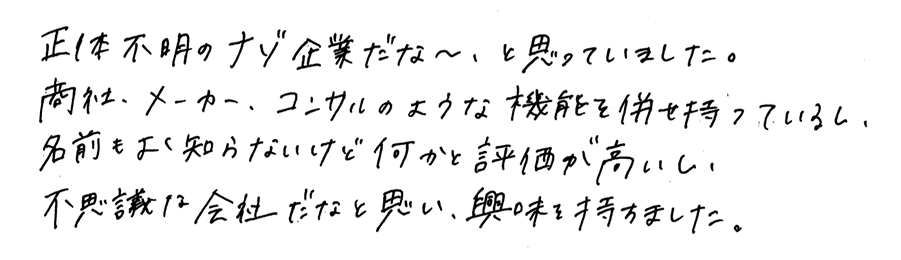 正体不明のナゾ企業だな〜、と思っていました。
商社、メーカー、コンサルのような機能を併せ持っているし、
名前もよく知らないけど何かと評価が高いし、
不思議な会社だなと思い、興味を持ちました。